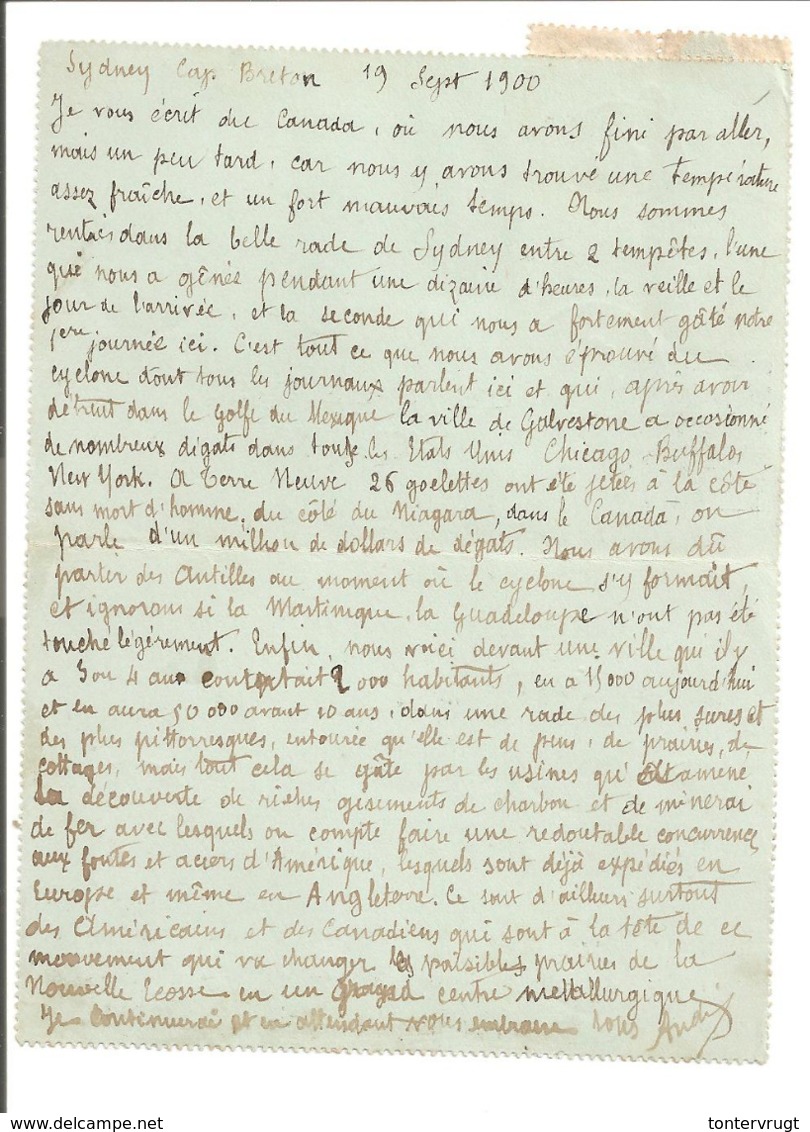 Sydney Cap Breton 19 Sept 1900
Je vous écrit du Canada, où nous avons fini par aller,
mais un peu tard, car nous y avons trouvé une température
assez fraîche, et un fort mauvais temps. Nous sommes
rentrés dans la belle rade de Sydney entre 2 tempêtes, l'une
qui nous a gênée pendant une dizaine d'heures, la veille et le
jour de l'arrivée, et la seconde qui nous a fortement gâté notre
1ere journée ici. C'est tout ce que nous avons éprouvé du
cyclone dont tous les journaux parlent ici et qui, après avoir
détruit dans le Golfe du Mexique la ville de Galvestone a occasionné
de nombreux dégats dans toute les Etats Unis Chicago Buffalos
New York. A Terre Neuve 26 goelettes ont été jetées à la côte
sans mort d'homme, du côté du Niagara, dans le Canada, on
parle d'un million de dollars de dégats. Nous avons dû
partir des Antilles au moment où le cyclone s'y formait,
et ignorons si la Martinique, la Guadeloupe n'ont pas été
touché légérement. Enfin, nous voici devant une ville qui il y
a 3 ou 4 ans comptait 2 000 habitants, en a 15000 aujourd'hui
et en aura 50 000 avant 10 ans, dans une rade des plus sures et
des plus pittorresques, entourée qu'elle est de pins, de prairies, de
cottages, mais tout cela se gâte par les usines qu'a amené
la découverte de riches gisements de charbon et de minerai
de fer avec lesquels on compte faire une redoutable concurrence
aux fontes et aciers d'Amérique, lesquels sont déjà expédiés en
Europe et même en Angleterre. Ce sont d'ailleurs surtout
des Américains et des Canadiens qui sont à la tête de ce
mouvement qui va changer les paisibles prairies de la
Nouvelle Ecosse en un grand centre metallurgique
Je continuerai et en attendant vous embrasse tous André
tontervrugt